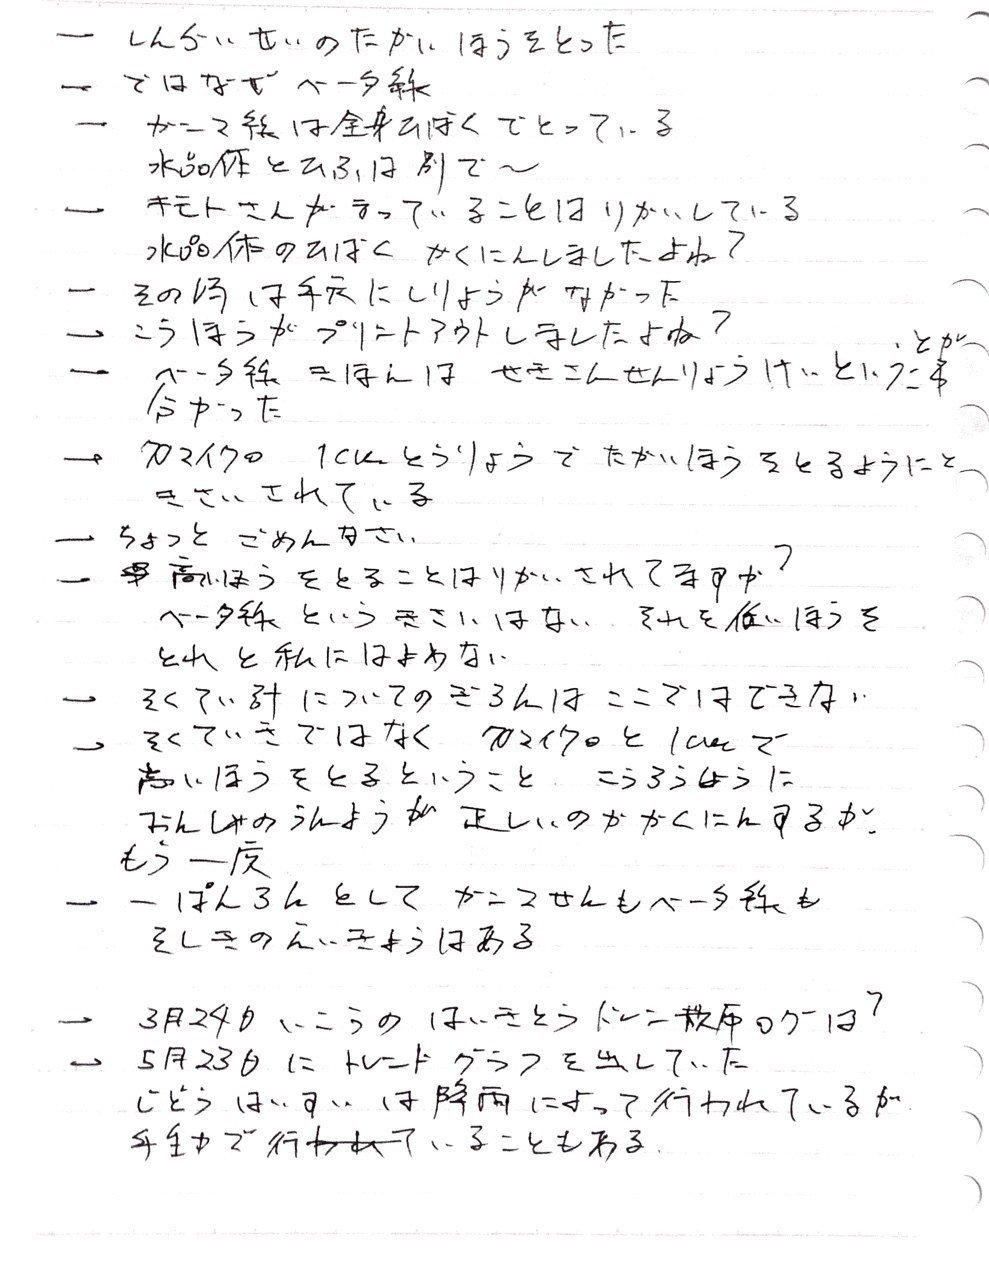 ― しんらいせいのたかいほうをとった
― ではなぜベータ線
― ガンマ線は全身ひばくでとっている
水晶体とひふは別で〜
― キモトさんが言っていることはりかいしている
水晶体のひばくかくにんしましたよね?
― その時は手元にしりょうがなかった
― こうほうがプリントアウトしましたよね?
― ベータ線きほんは せきさんせんりょうけいということが
分かった
― 70マイクロ 1cmとうりょうでたかいほうをとるようにと
きさいされている
― ちょっとごめんなさい
― 高いほうをとることはりかいされてますか?
ベータ線というきさいはない それを低いほうを
とれと私にはよめない
― そくてい計についてのぎろんはここではできない
― そくていきではなく 70マイクロと1cmで
高いほうをとるということ こうろうしょうに
おんしゃのうんようが正しいのかかくにんするが
もう一度
― 一ぱんろんとして ガンマせんもベータ線も
そしきのえいきょうはある
― 3月24日いこうのはいきとうドレン ログは?
― 5月23日にトレンドグラフを出していた
じどうはいすいは降雨によって行われているが
手動で行っていることもある